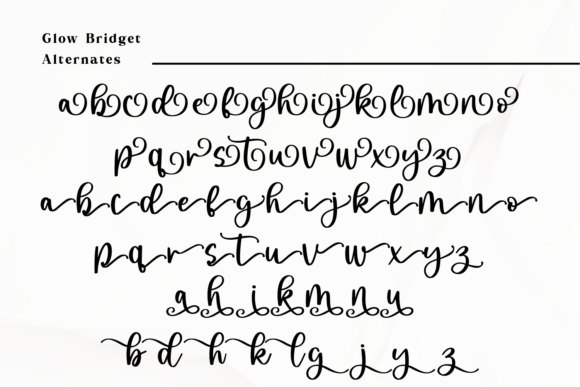 Glow Bridget
Alternates
a b c d e f g h i j k l m n o
p q r s t u v w x y z
a b c d e f g h i j k l m n o
p q r s t u v w x y z
a h i k m n u
b d h k l g j y z